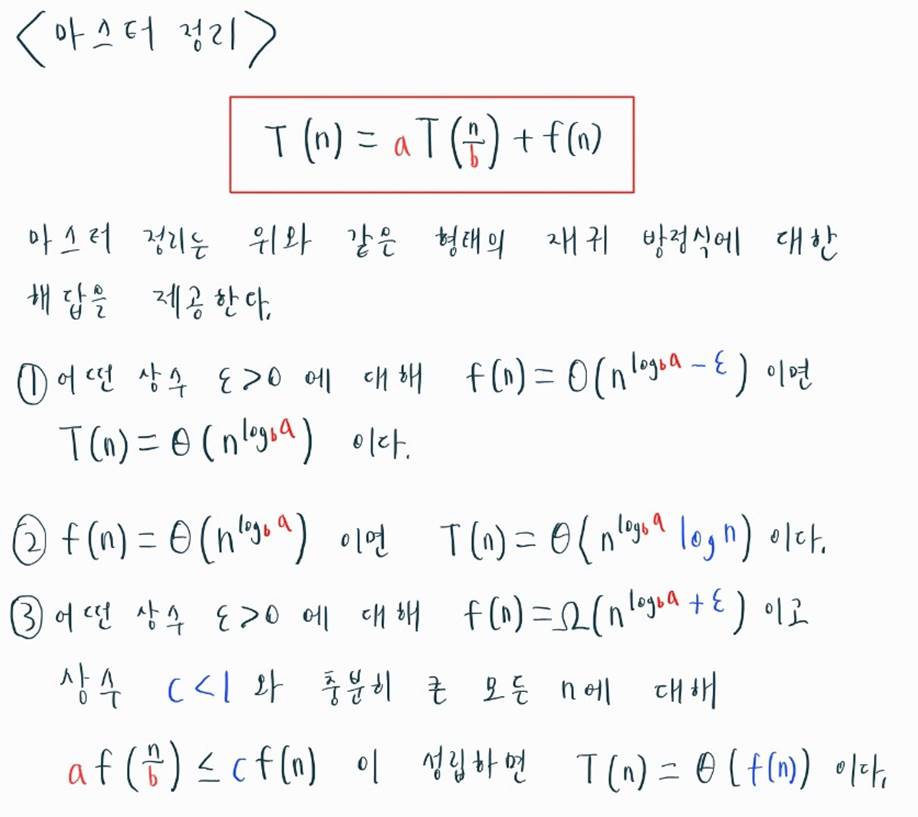 <마스터 정리>
T(n) = aT(n/b) + f(n)
마스터 정리는 위와 같은 형태의 재귀 방정식에 대한
해답을 제공한다.
① 어떤 상수 ε>0 에 대해 f(n) = O(n^(log_b a - ε)) 이면
T(n) = Θ(n^(log_b a)) 이다.
② f(n) = Θ(n^(log_b a)) 이면 T(n) = Θ(n^(log_b a) log n) 이다.
③ 어떤 상수 ε>0 에 대해 f(n) = Ω(n^(log_b a + ε)) 이고
상수 c<1 와 충분히 큰 모든 n에 대해
af(n/b) ≤ cf(n) 이 성립하면 T(n) = Θ(f(n)) 이다.